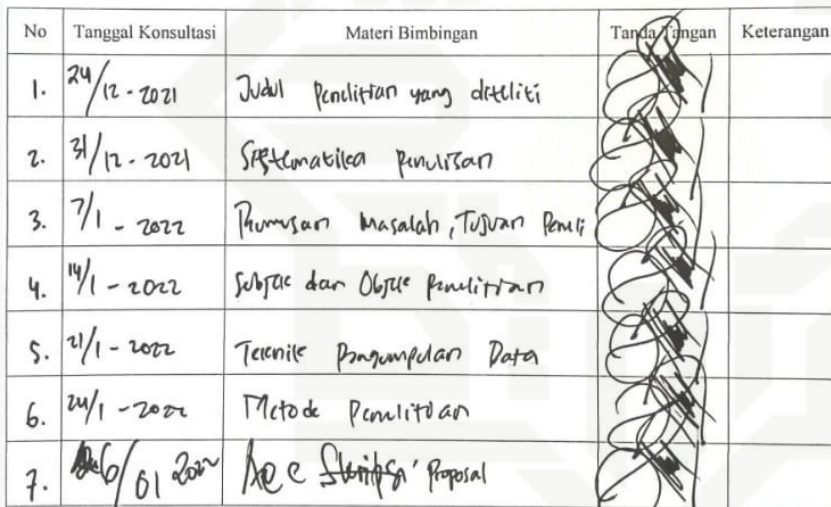 No Tanggal Konsultasi Materi Bimbingan Tanda Tangan Keterangan
1. 24/12 - 2021 Judul Penelitian yang diteliti
2. 31/12 - 2021 Sistematika Penulisan
3. 7/1 - 2022 Rumusan Masalah, Tujuan Peneli
4. 14/1 - 2022 Subjek dan Objek Penelitian
5. 21/1 - 2022 Teknik Pengumpulan Data
6. 24/1 - 2022 Metode Penelitian
7. 26/01 2022 Acc Skripsi Proposal